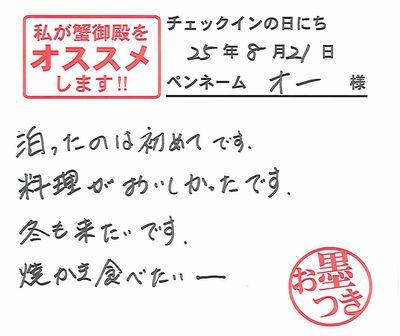 私が蟹御殿を
オススメ
します!!
チェックインの日にち
25年8月21日
ペンネーム オー 様
泊ったのは初めてです.
料理がおいしかったです.
冬も来たいです.
焼かき食べたいー
お墨つき